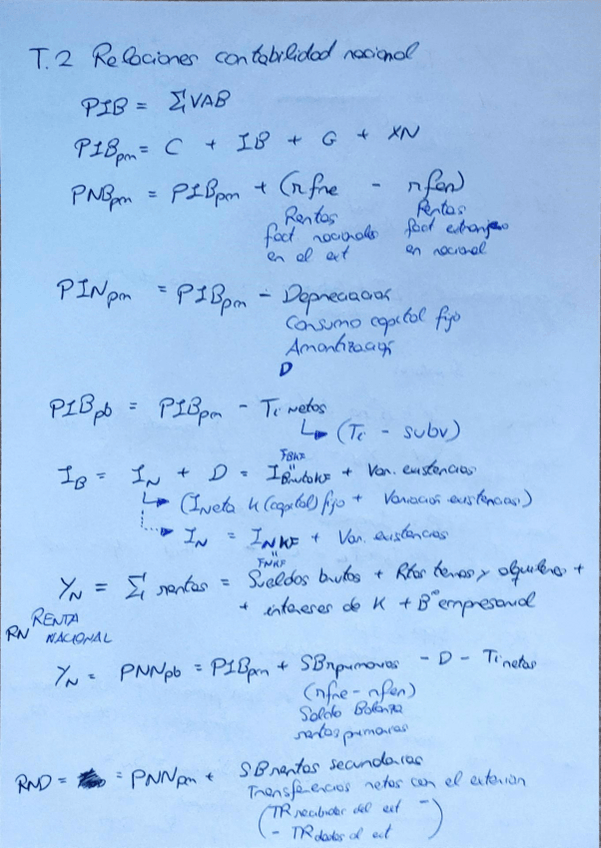 T.2 Relaciones contabilidad nacional
PIB = Σ VAB
PIBpm = C + IB + G + XN
PNBpm = PIBpm + (rfne - rfen)
Rentas Rentas
fact nacionales fact extranjero
en el ext en nacional
PINpm = PIBpm - Depreciación
Consumo capital fijo
Amortización
D
PIBpb = PIBpm - Ti netos
↳ (Ti - subv)
FBKF
IB = IN + D = IBrutaKF + Var. existencias
↳ (Ineta K (capital) fijo + Variación existencias)
↳ IN = INKF + Var. existencias
FNKF
YN = Σ rentas = Sueldos brutos + Rtas tierras y alquileres +
+ intereses de K + Bº empresarial
RN RENTA
NACIONAL
YN = PNNpb = PIBpm + SBrprimarias - D - Ti netos
(rfne - rfen)
Saldo Balanza
rentas primarias
RND = = PNNpm + SB rentas secundarias
Transferencias netas con el exterior
(TR recibidas del ext -
- TR dadas al ext)